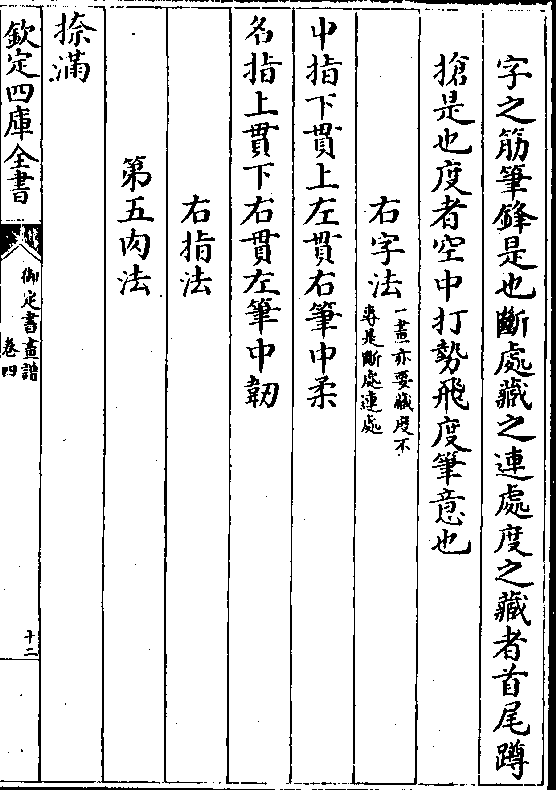 字之筋筆鋒是也斷處藏之連處度之藏者首尾蹲
搶是也度者空中打勢飛度筆意也
右字法
一畫亦要藏度不
專是斷處連處
中指下貫上左貫右筆中柔
名指上貫下右貫左筆中韌
右指法
第五肉法
捺滿
欽定四庫全書
御定書畫譜
卷四
十二